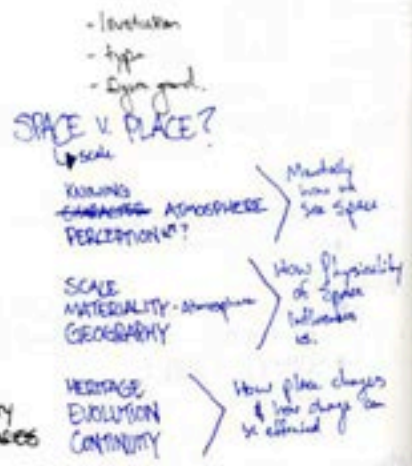 - type
- figure ground.
SPACE V. PLACE?
scale
KNOWING
CHARACTER ATMOSPHERE
PERCEPTION ?
Mentally
how we
see space
SCALE
MATERIALITY - Atmosphere
GEOGRAPHY
How Physicality
of Space
Influences
us.
HERITAGE
EVOLUTION
CONTINUITY
How place changes
& how change can
be effected